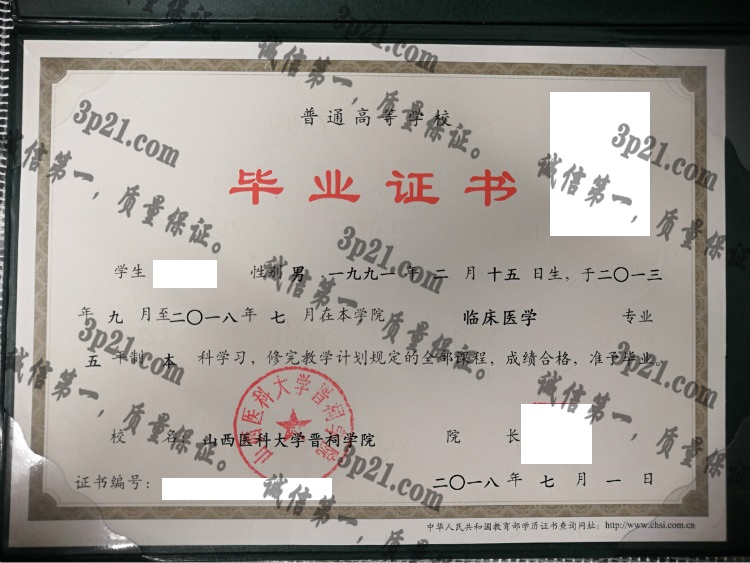 普通高等学校
毕业证书
学生 性别 男 一九九一 年 二 月 十五 日生，于二〇一三
年 九 月至二〇一八年 七 月在本学院 临床医学 专业
五 年制 本 科学习，修完教学计划规定的全部课程，成绩合格，准予毕业。
校 名：山西医科大学晋祠学院 院 长
山西医科大学晋祠学院
证书编号： 二〇一八年 七 月 一 日
中华人民共和国教育部学历证书查询网址：http://www.chsi.com.cn
3p21.com
诚信第一，质量保证。
3p21.com
诚信第一，质量保证。
3p21.com
诚信第一，质量保证。
3p21.com
诚信第一，质量保证。
3p21.com
诚信第一，质量保证。
3p21.com
诚信第一，质量保证。
3p21.com
诚信第一，质量保证。